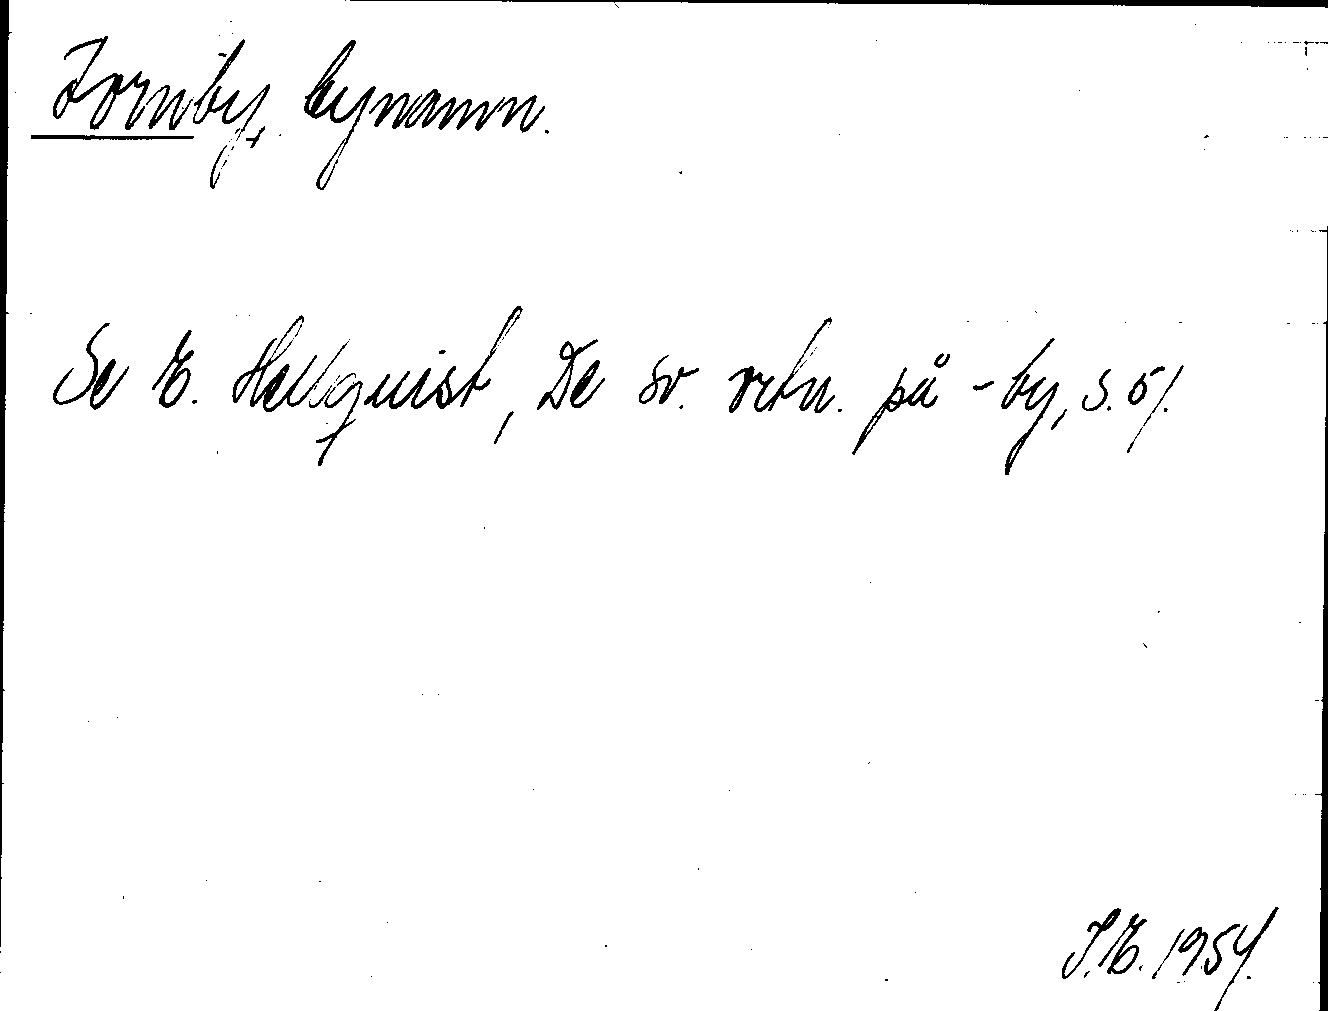 Fornby, bynamn.
Se E. Hellquist, De sv. ortn. på -by, s. 51.
S.E. 1954.